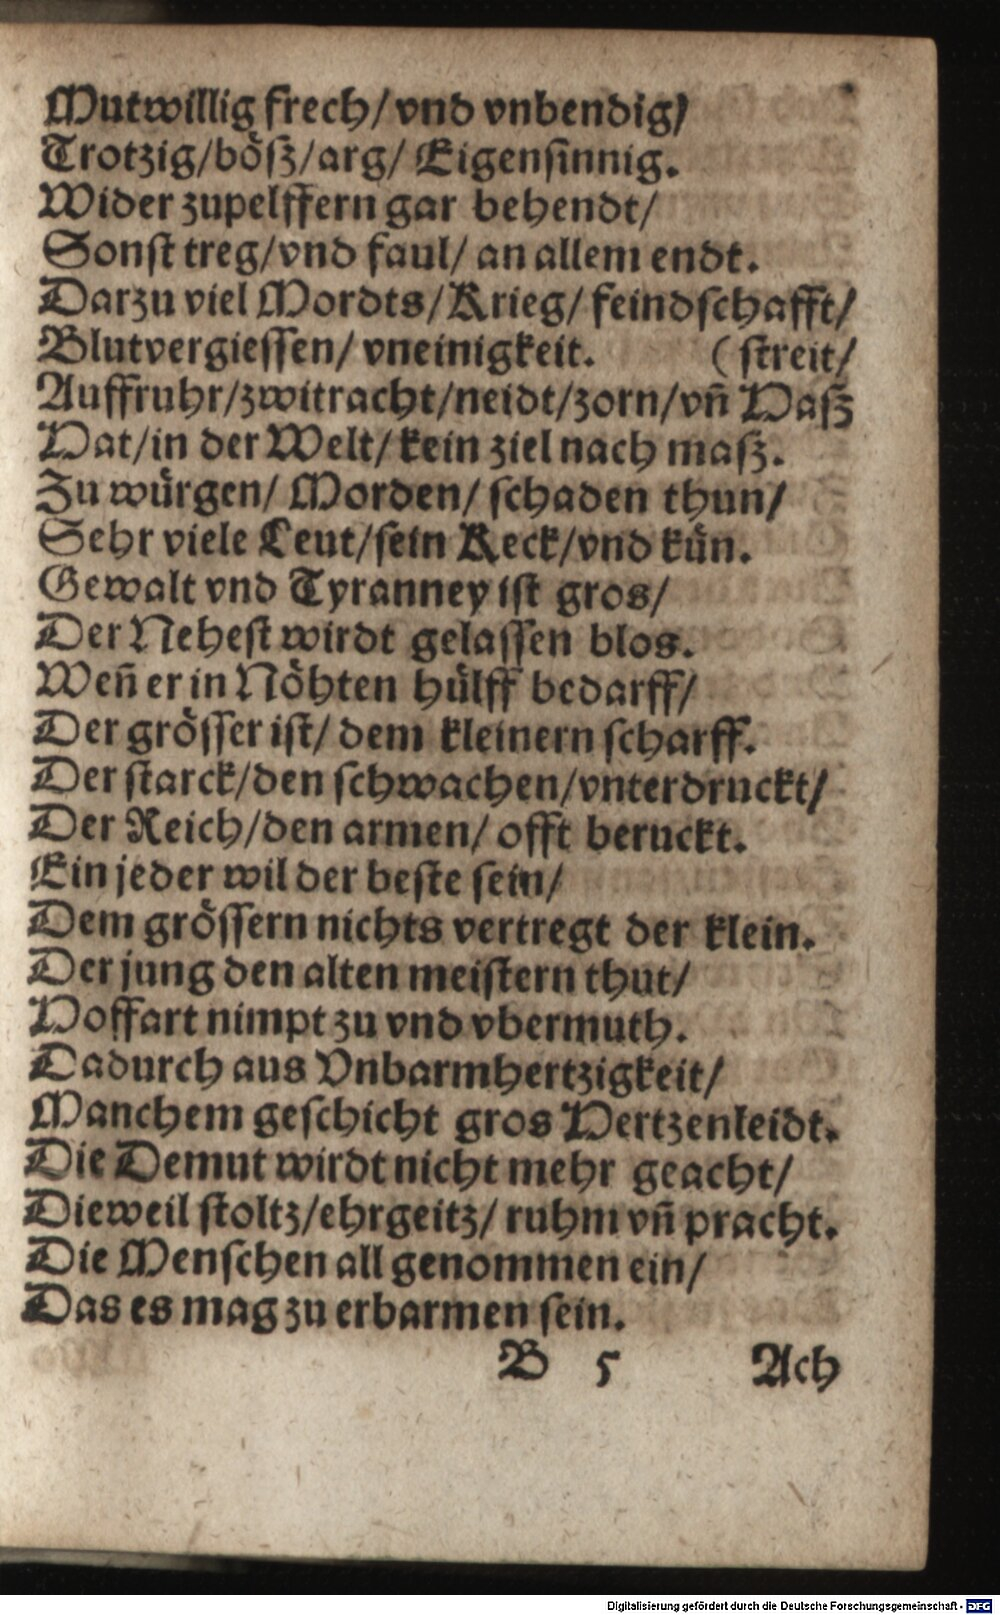 Mutwillig frech/ vnd vnbendig/
Trotzig/böſz/arg/ Eigenſinnig.
Wider zupelffern gar behendt/
Sonſt treg/vnd faul/ an allem endt.
Darzu viel Mordts/Krieg/ feindſchafft/
Blutvergieſſen/ vneinigkeit. (ſtreit/
Auffruhr/zwitracht/neidt/zorn/vn̄ Haſz
Hat/in der Welt/kein ziel nach maſz.
Zu würgen/ Morden/ ſchaden thun/
Sehr viele Leut/ſein Keck/vnd kün.
Gewalt vnd Tyranney iſt gros/
Der Neheſt wirdt gelaſſen blos.
Wen̄ er in Nöhten hülff bedarff/
Der gröſſer iſt/ dem kleinern ſcharff.
Der ſtarck/den ſchwachen/vnterdruckt/
Der Reich/den armen/ offt beruckt.
Ein jeder wil der beſte ſein/
Dem gröſſern nichts vertregt der klein.
Der jung den alten meiſtern thut/
Hoffart nimpt zu vnd vbermuth.
Dadurch aus Vnbarmhertzigkeit/
Manchem geſchicht gros Hertzenleidt.
Die Demut wirdt nicht mehr geacht/
Dieweil ſtoltz/ehrgeitz/ ruhm vn̄ pracht.
Die Menſchen all genommen ein/
Das es mag zu erbarmen ſein.
B 5 Ach
Digitalisierung gefördert durch die Deutsche Forschungsgemeinschaft - DFG